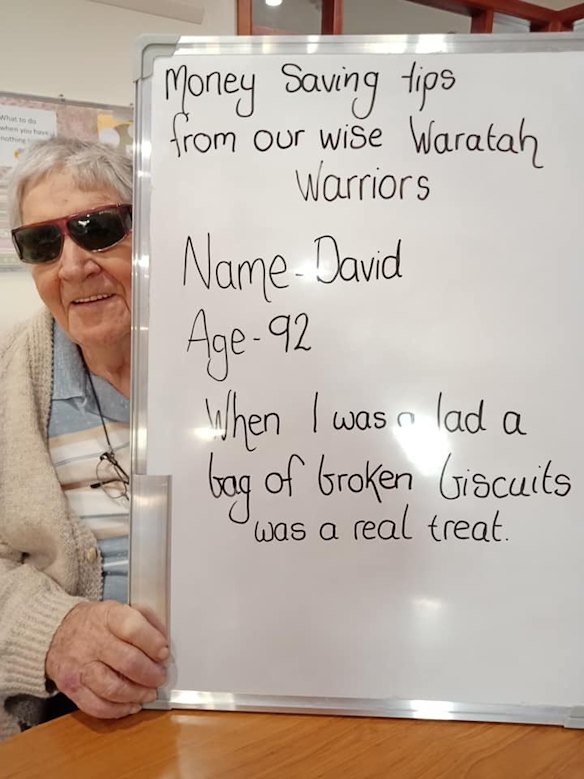 Money Saving tips
from our wise Waratah
Warriors
Name - David
Age - 92
When I was a lad a
bag of broken biscuits
was a real treat.
What to do
when you have
nothing